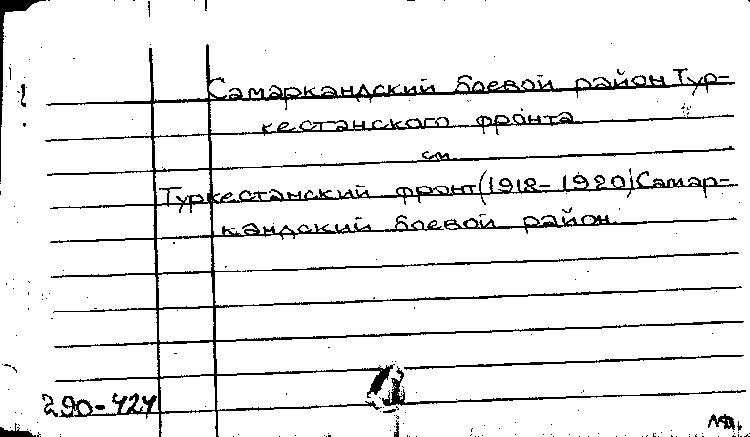 Самаркандский боевой район Тур-
кестанского фронта
см.
Туркестанский фронт (1918-1920) Самар-
кандский боевой район.
290-424